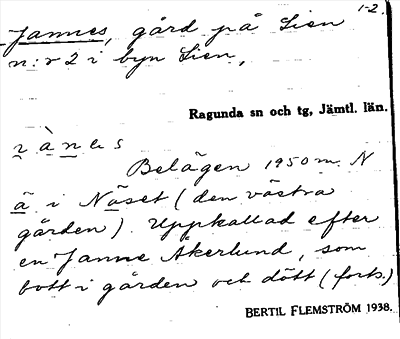 1-2.
Jannes, gård på Lien
n:r 2 i byn Lien,
Ragunda sn och tg, Jämtl. län.
Belägen 1950 m N
ä i Näset (den västra
gården). Uppkallad efter
en Janne Åkerlund, som
bott i gården och dött (forts.)
BERTIL FLEMSTRÖM 1938.